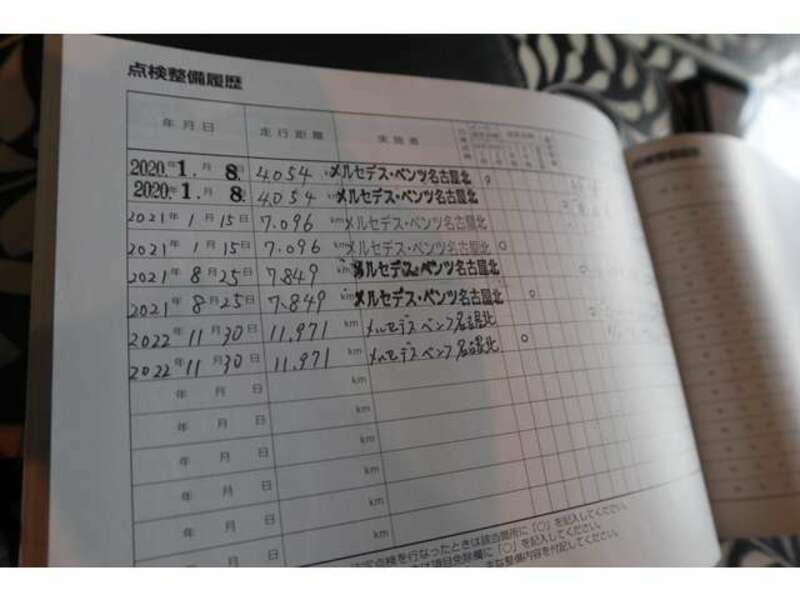 点検整備履歴
年月日 走行距離 実施者
2020.年1.月8.日 4.054 km メルセデス・ベンツ名古屋北
2020.年1.月8.日 4.054 km メルセデス・ベンツ名古屋北
2021年1月15日 7.096 km メルセデス・ベンツ名古屋北
2021年1月15日 7.096 km メルセデス・ベンツ名古屋北 ○
2021年8月25日 7.849 km メルセデス・ベンツ名古屋北 ○
2021年8月25日 7.849 km メルセデス・ベンツ名古屋北 ○
2022年11月30日 11.971 km メルセデスベンツ名古屋北
2022年11月30日 11.971 km メルセデスベンツ名古屋北 ○
年月日 km
年月日 km
年月日 km
年月日 km
年月日 km
年月日
定点検を行なったときは該当箇所に「○」を記入してください。
は項目免除欄に「○」を記入してください。
主な整備内容を付記してください。
点検整備